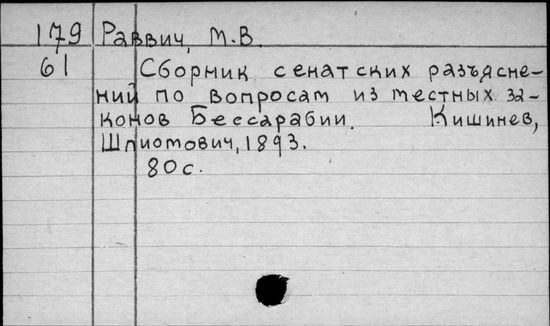 179 Раввич, М.В.
61 Сборник сенатских разъясне-
ний по вопросам из местных за-
конов Бессарабии. Кишинев,
Шлиомович, 1893.
80 с.